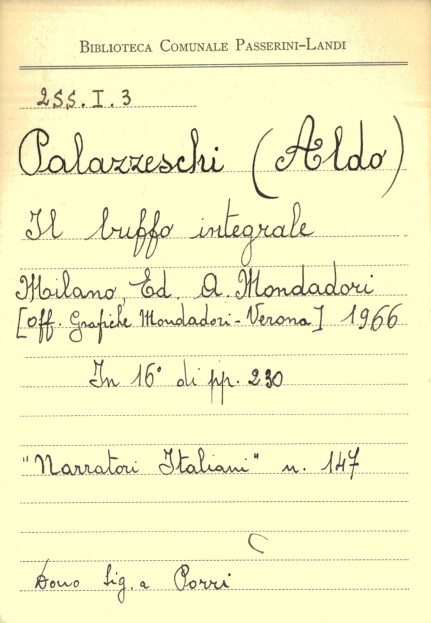 BIBLIOTECA COMUNALE PASSERINI-LANDI
255.I.3
Palazzeschi (Aldo)
Il buffo integrale
Milano, Ed. A. Mondadori
[Off. Grafiche Mondadori - Verona] 1966
In 16° di pp. 230
"Narratori Italiani" n. 147
C
Dono Sig.a Porri